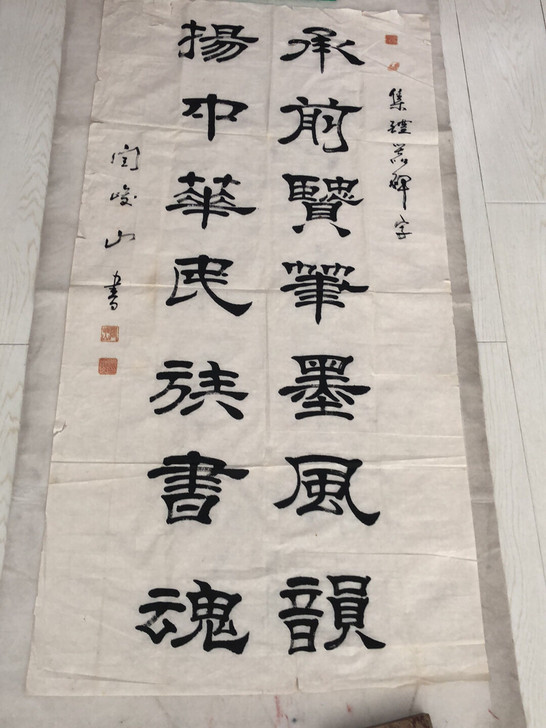 集禮器碑字
承前賢筆墨風韻
揚中華民族書魂
闫峻山書